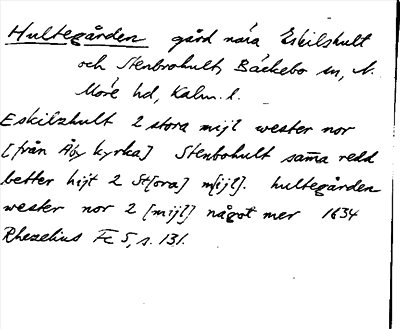 Hultegården gård nära Eskilshult
och Stenbrohult, Bäckebo sn, N.
Möre hd, Kalm. l.
Eskilzhult 2 stora mijl wester nor
[från Åby kyrka] Stenbohult sama redd
better hijt 2 St[ora] m[ijl]. hultegården
wester nor 2 [mijl] något mer 1634
Rhezelius Fc 5, s. 131.